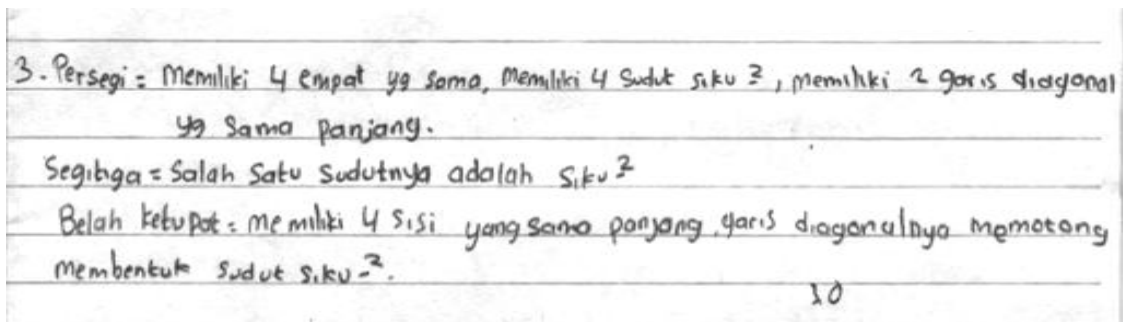 3. Persegi = Memiliki 4 empat yg sama, memiliki 4 sudut siku ², memiliki 2 garis diagonal
yg sama panjang.
Segitiga = Salah satu sudutnya adalah siku ²
Belah ketupat = memiliki 4 sisi yang sama panjang, garis diagonalnya memotong
membentuk sudut siku-².
10